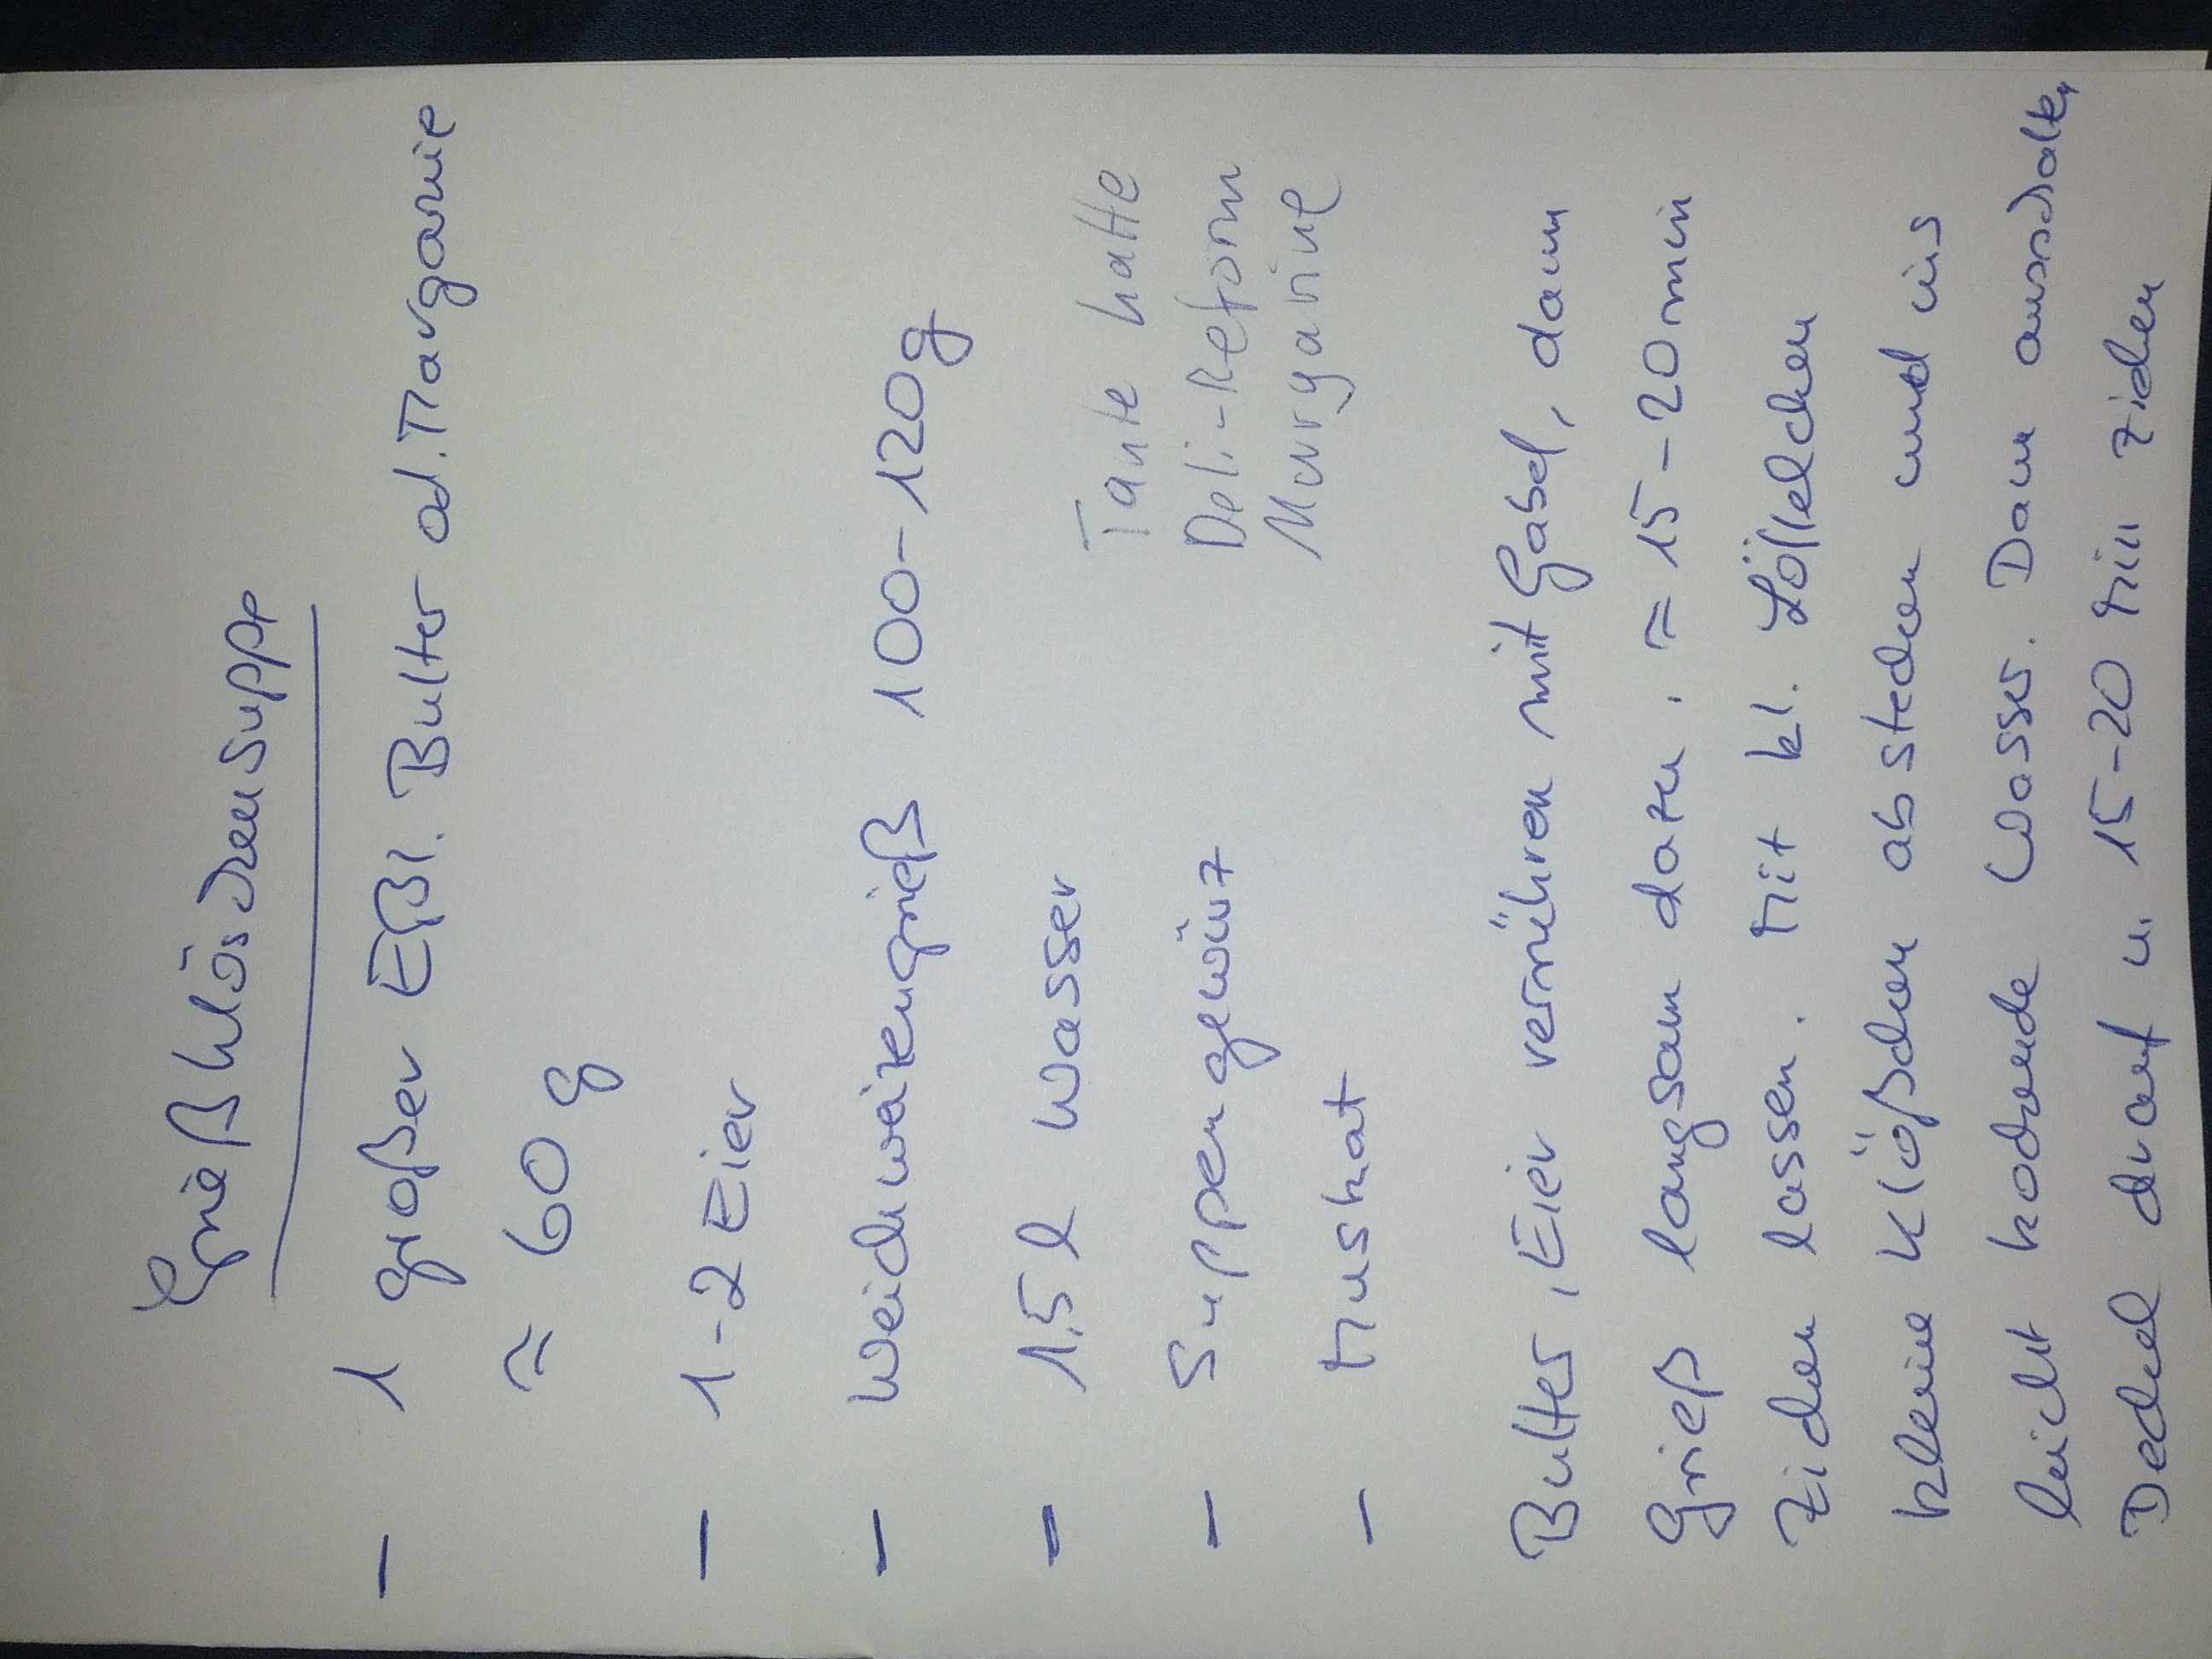 Grießklöschensuppe
- 1 großer Eßl. Butter od. Margarine
≈ 60 g
- 1-2 Eier
- Weichweizengrieß 100-120g
- 1.5 l Wasser
Tante hatte
- Suppengewürz
Deli-Reform
- Muskat
Margarine
Butter, Eier verrühren mit Gabel, dann
Grieß langsam dazu. ≈ 15-20min
ziehen lassen. Mit kl. Löffelchen
kleine Klößchen abstechen und ins
leicht kochende Wasser. Dann ausschalten,
Deckel drauf u. 15-20 Min ziehen